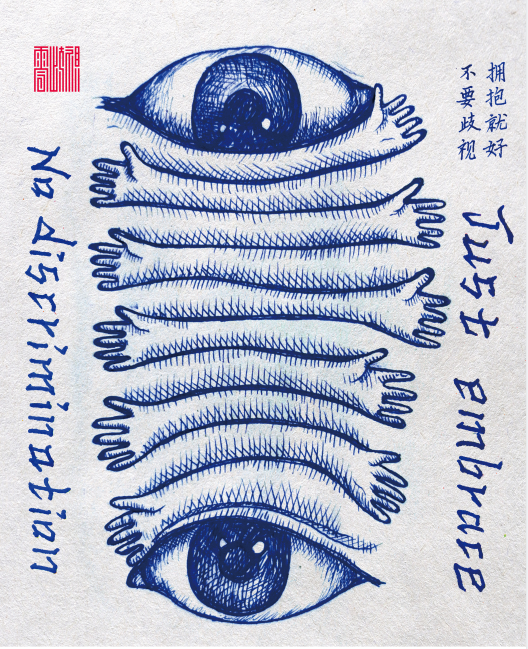 拥抱就好
不要歧视
Just embrace
No discrimination